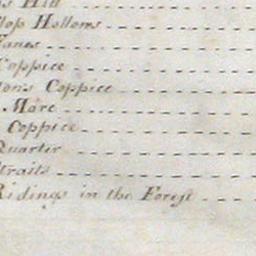 Hill
Hollows
Lanes
Coppice
Coppice
More
Coppice
Quarter
Straits
Ridings in the Foreſt